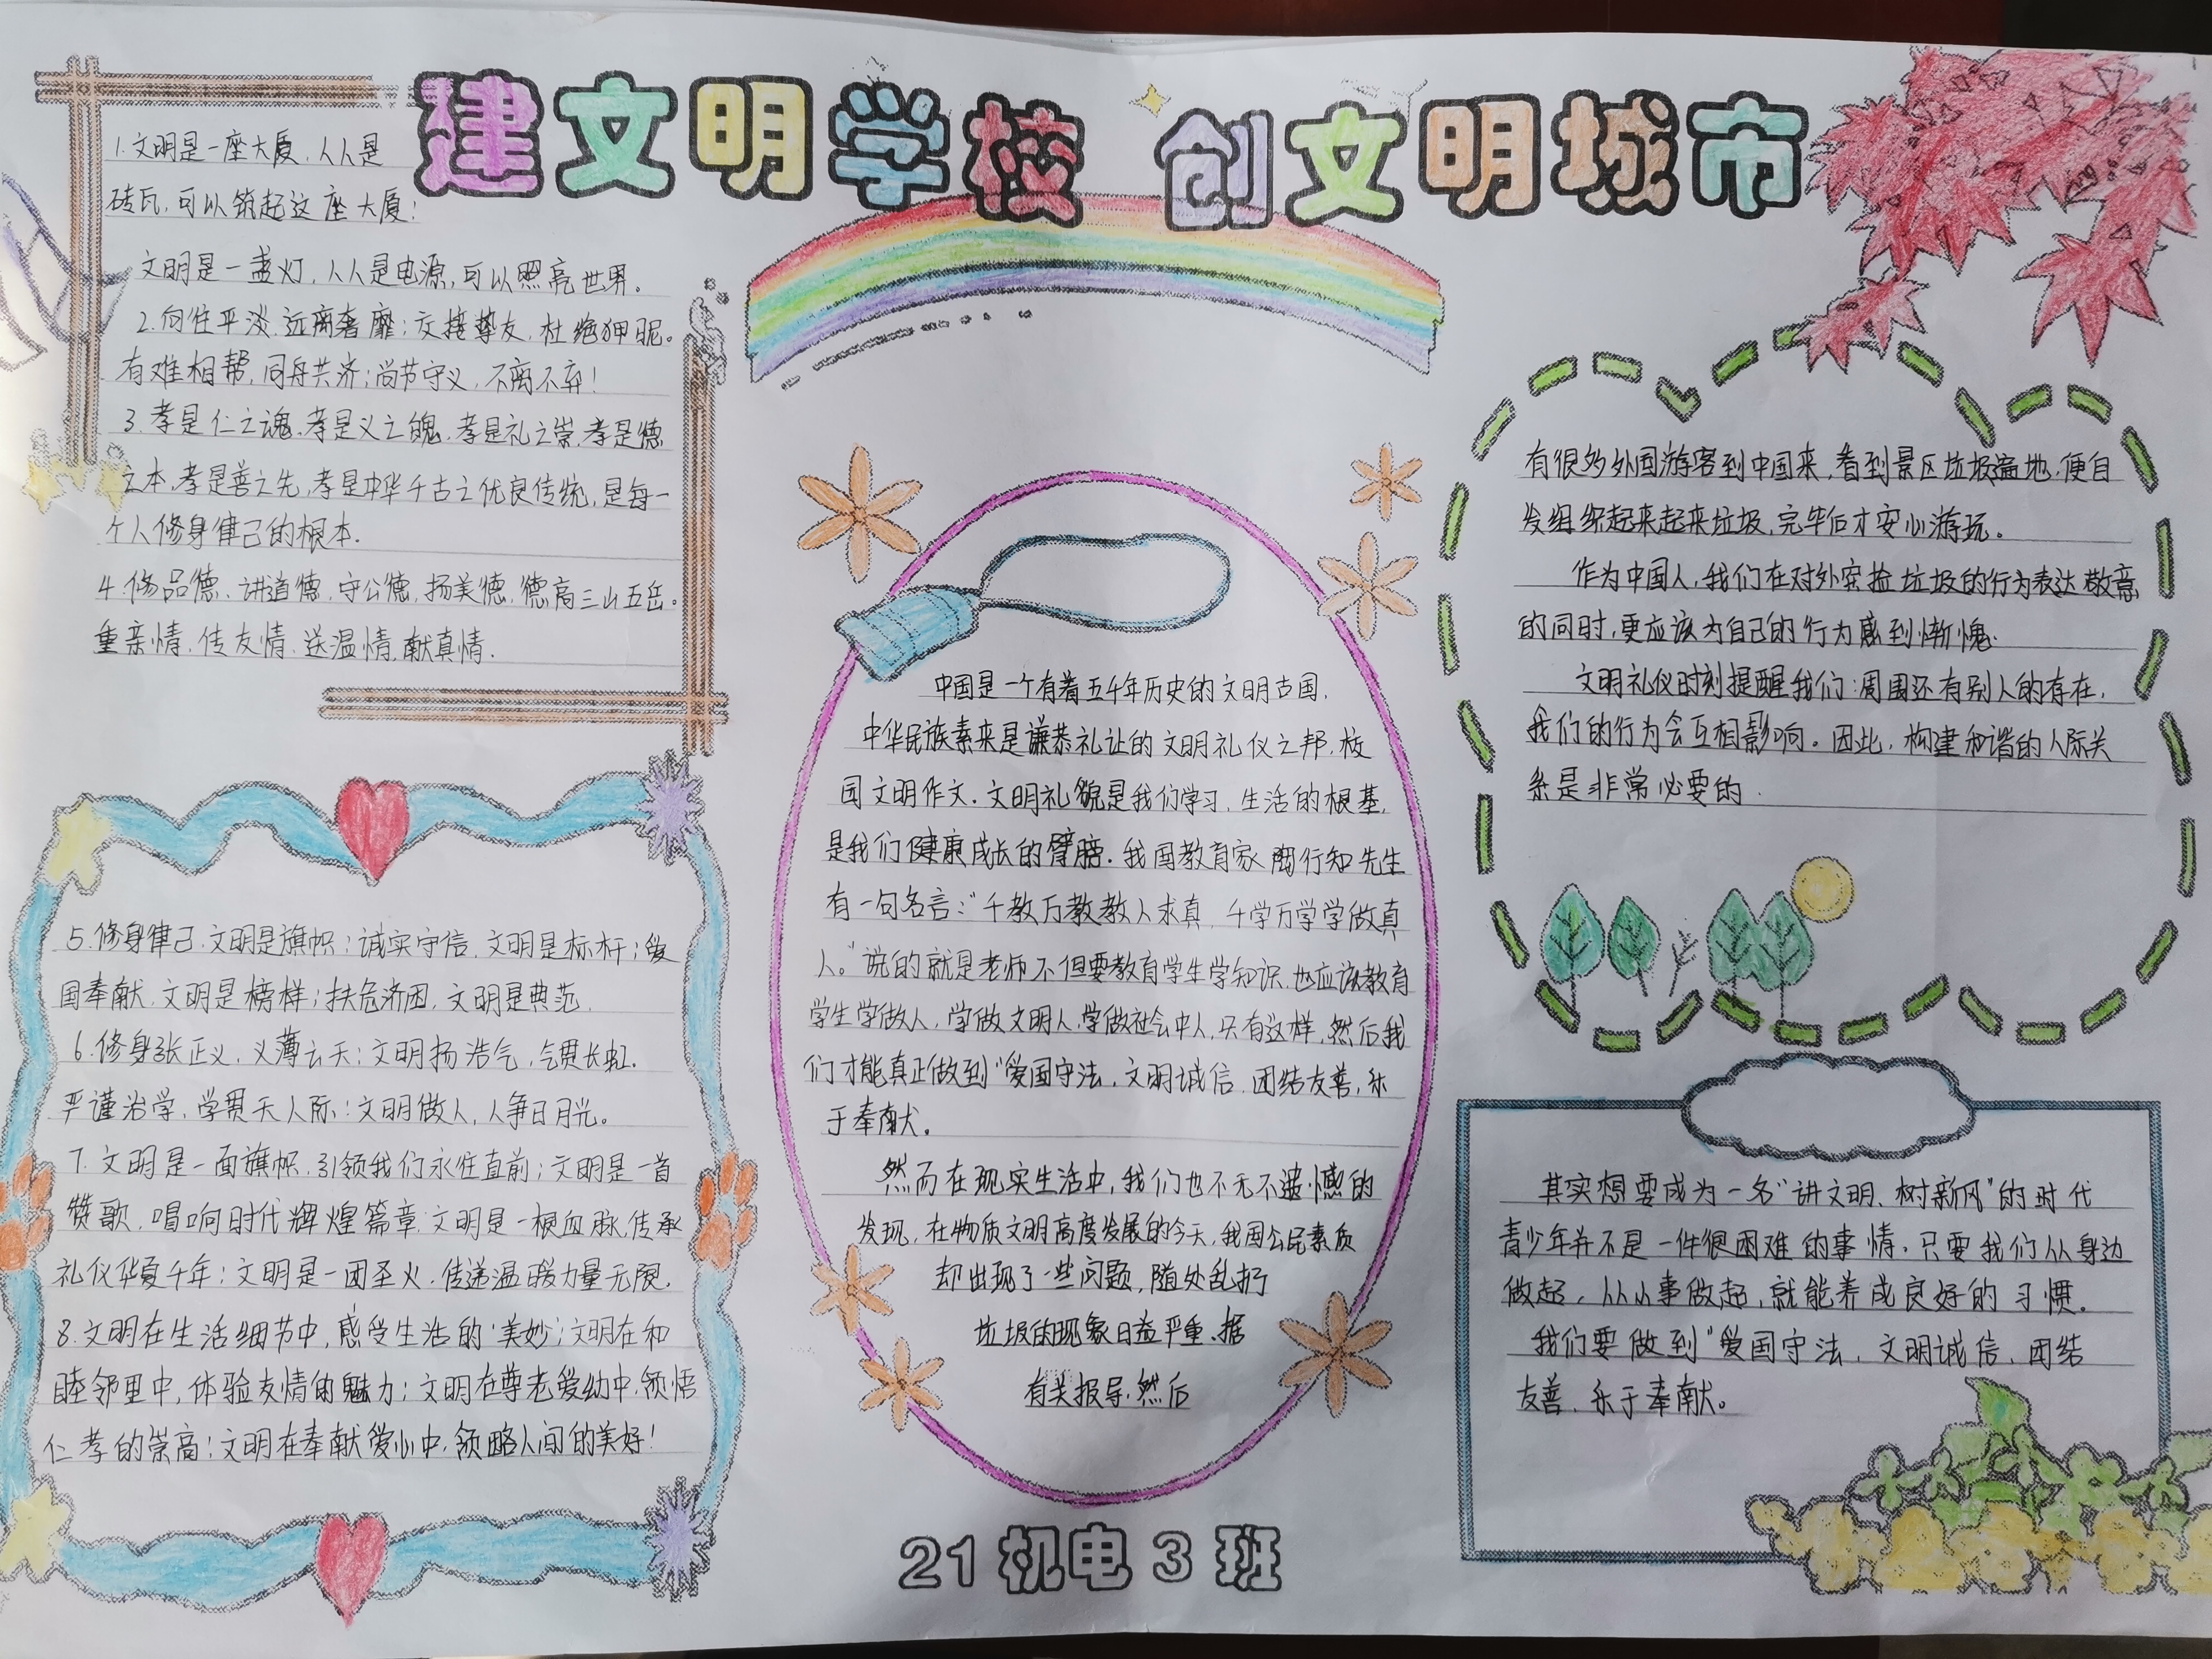 建文明学校 创文明城市
1.文明是一座大厦，人人是
砖瓦，可以筑起这座大厦！
文明是一盏灯，人人是电源，可以照亮世界。
2.向往平淡，远离奢靡；交接挚友，杜绝狎昵。
有难相帮，同舟共济；尚节守义，不离不弃！
3.孝是仁之魂，孝是义之魄，孝是礼之崇，孝是德
之本，孝是善之先，孝是中华千古之优良传统，是每一
个人修身律己的根本.
4.修品德、讲道德，守公德，扬美德，德高三山五岳。
重亲情，传友情，送温情，献真情.
5.修身律己，文明是旗帜；诚实守信，文明是标杆；爱
国奉献，文明是榜样；扶危济困，文明是典范.
6.修身张正义，义薄云天；文明扬浩气，气贯长虹.
严谨治学，学贯天人际；文明做人，人争日月光。
7.文明是一面旗帜，引领我们永住直前；文明是一首
赞歌，唱响时代辉煌篇章；文明是一根血脉，传承
礼仪华夏千年；文明是一团圣火，传递温暖力量无限.
8.文明在生活细节中，感受生活的美妙；文明在和
睦邻里中，体验友情的魅力；文明在尊老爱幼中，领悟
仁孝的崇高；文明在奉献爱心中，领略人间的美好！
中国是一个有着五千年历史的文明古国，
中华民族素来是谦恭礼让的文明礼仪之邦，校
园文明作文.文明礼貌是我们学习，生活的根基，
是我们健康成长的臂膀.我国教育家陶行知先生
有一句名言：“千教万教教人求真，千学万学学做真
人。”说的就是老师不但要教育学生学知识，也应该教育
学生学做人，学做文明人，学做社会中人，只有这样，然后我
们才能真正做到“爱国守法，文明诚信，团结友善，乐
于奉献。
然而在现实生活中，我们也不无不遗憾的
发现，在物质文明高度发展的今天，我国公民素质
却出现了一些问题，随处乱扔
垃圾的现象日益严重、据
有关报导，然后
有很多外国游客到中国来，看到景区垃圾遍地，便自
发组织起来起来垃圾，完毕后才安心游玩。
作为中国人，我们在对外宾捡垃圾的行为表达敬意
的同时，更应该为自己的行为感到惭愧.
文明礼仪时刻提醒我们：周围还有别人的存在，
我们的行为会互相影响。因此，构建和谐的人际关
系是非常必要的.
其实想要成为一名“讲文明、树新风”的时代
青少年并不是一件很困难的事情，只要我们从身边
做起，从小事做起，就能养成良好的习惯。
我们要做到“爱国守法，文明诚信，团结
友善，乐于奉献。
21机电3班